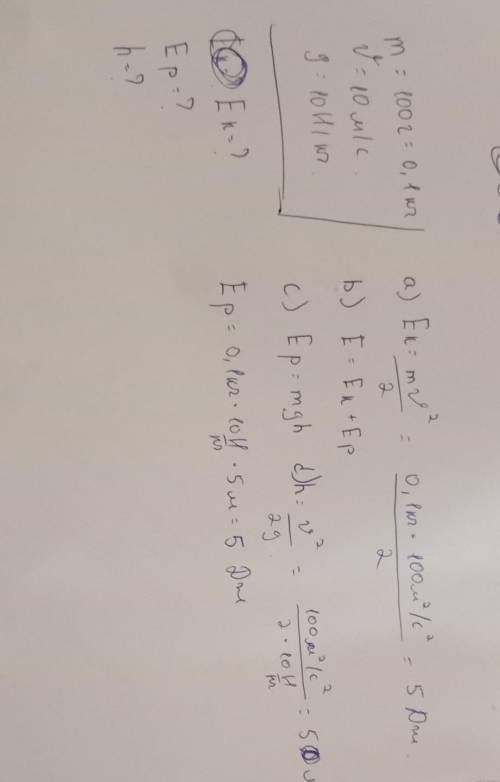 m = 100г = 0,1кг
v = 10м/с.
g = 10Н/кг
Eк = ?
Ep = ?
h = ?
a) Eк = mv²/2 = 0,1кг · 100м²/с² / 2 = 5 Дж.
b) E = Eк + Ep
c) Ep = mgh d) h = v²/2g = 100м²/с² / 2 · 10Н/кг = 5
Ep = 0,1кг · 10Н/кг · 5м = 5 Дж